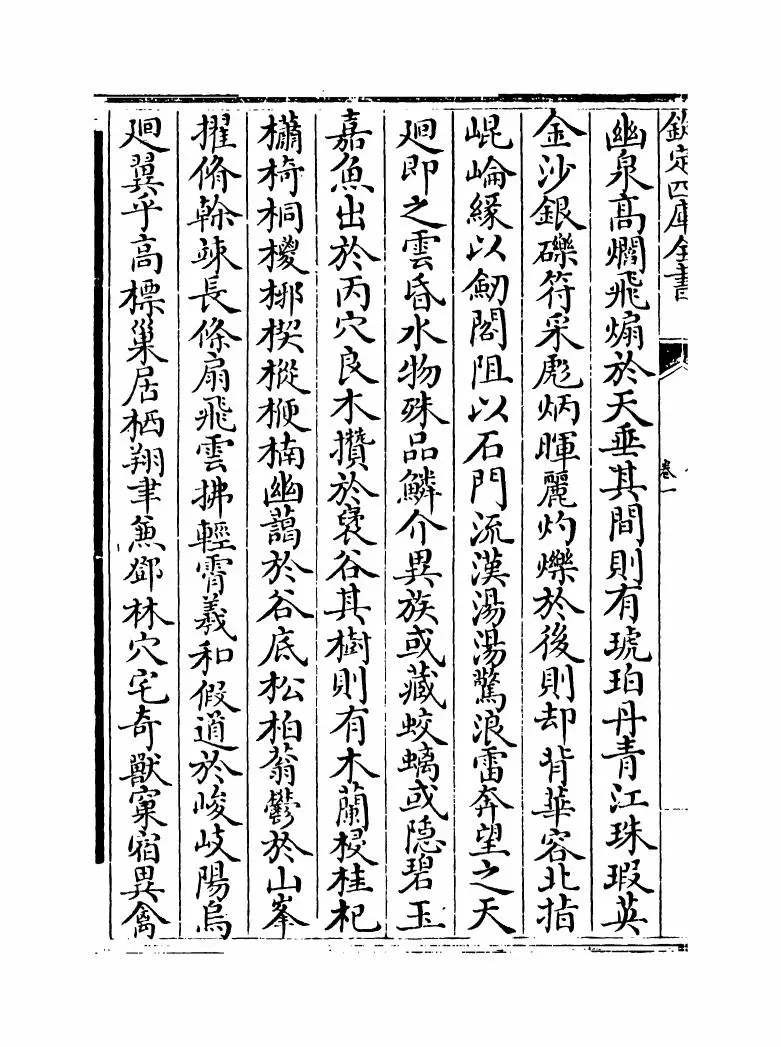 欽定四庫全書
卷一
幽泉高爓飛煽於天垂其間則有琥珀丹青江珠瑕英
金沙銀礫符采彪炳暉麗灼爍於後則却背華容北指
崐崘緣以劒閣阻以石門流漢湯湯驚浪雷奔望之天
廻即之雲昏水物殊品鱗介異族或藏蛟螭或隠碧玉
嘉魚出於丙穴良木攢於裦谷其樹則有木蘭梫桂杞
櫹椅桐㯶枒楔樅楩楠幽藹於谷底松柏蓊鬱於山峯
擢脩幹竦長條扇飛雲拂輕霄羲和假道於峻岐陽烏
廻翼乎高標巢居栖翔聿兼鄧林穴宅奇獸窠宿異禽